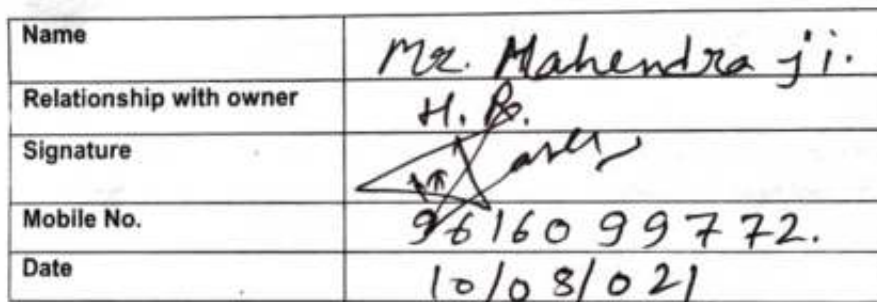 Name Mr. Mahendra ji.
Relationship with owner H. B.
Signature
Mobile No. 9616099772.
Date 10/08/021